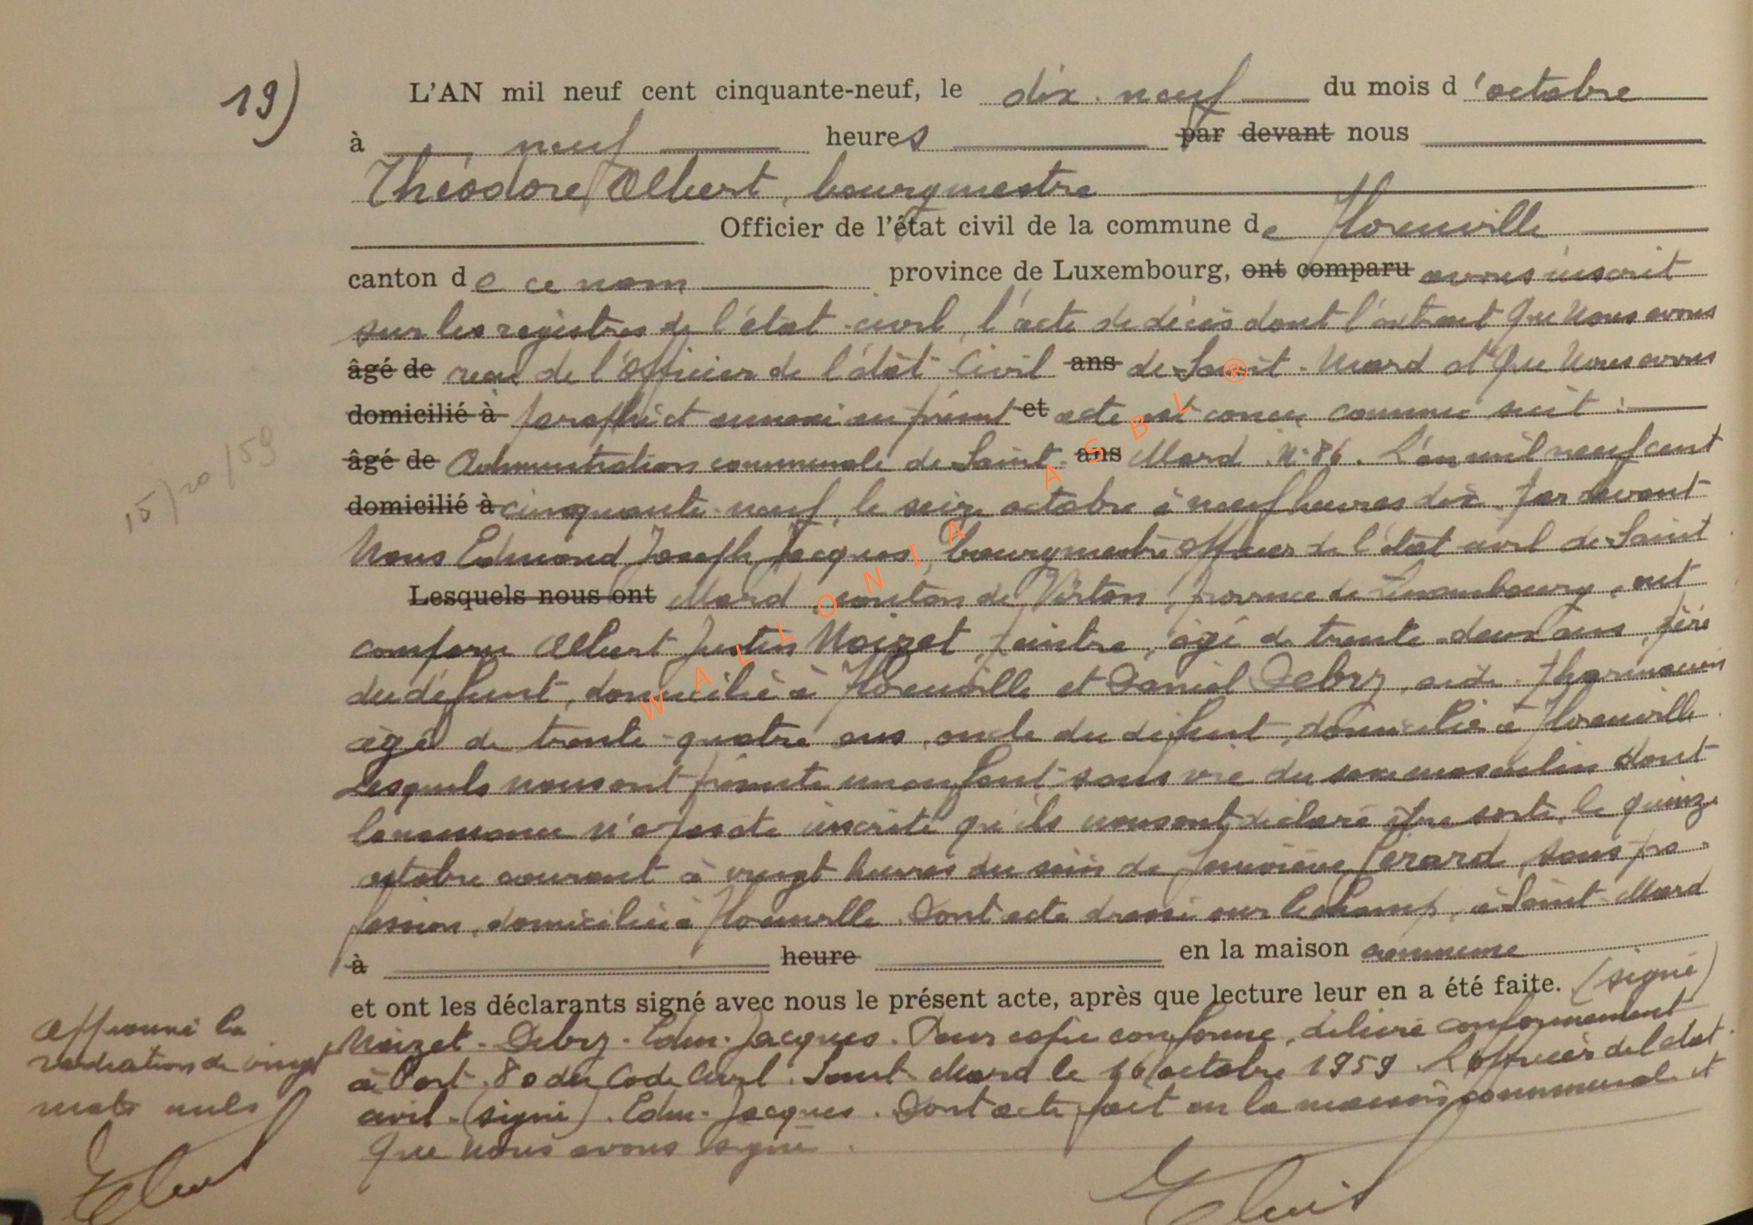 19)
L'AN mil neuf cent cinquante-neuf, le dix-neuf du mois d'octobre
à neuf heures par devant nous
Théodore Albert, bourgmestre
Officier de l'état civil de la commune de Florenville
canton de ce nom province de Luxembourg, ont comparu avons inscrit
sur les registres de l'état-civil, l'acte de décès dont l'extrait que Nous avons
âgé de reçu de l'Officier de l'état Civil ans de Saint-Mard et que Nous avons
domicilié à paraphé et annexé au présent et acte est conçu comme suit :
âgé de Administration communale de Saint- ans Mard N° 86. L'an mil neuf cent
domicilié à cinquante-neuf, le seize octobre à neuf heures dix. Par devant
Nous Edmond Joseph Jacques, bourgmestre officier de l'état civil de Saint
Lesquels nous ont Mard, canton de Virton, province de Luxembourg, ont
comparu Albert Justin Noizet, peintre, âgé de trente-deux ans, père
du défunt, domicilié à Florenville et Daniel Debry, aide-pharmacien
âgé de trente-quatre ans, oncle du défunt, domicilié à Florenville.
Lesquels nous ont présenté un enfant sans vie du sexe masculin dont
la naissance n'a pas été inscrite qu'ils nous ont déclaré être sorti, le quinze
octobre courant à vingt heures du sein de Geneviève Gérard, sans pro-
fession, domiciliée à Florenville. Dont acte dressé sur le champ, à Saint-Mard
à heure en la maison commune
et ont les déclarants signé avec nous le présent acte, après que lecture leur en a été faite. (signé)
Noizet - Debry - Edm. Jacques. Pour copie conforme, délivré conformément
à l'art. 80 du Code Civil. Saint-Mard le 16 octobre 1959. L'officier de l'état
civil - (signé). Edm. Jacques. Dont acte, fait en la maison communale et
que nous avons signé.
15/10/59
Approuvé la
radiation de vingt
mots nuls
WALLONIA ASBL ®